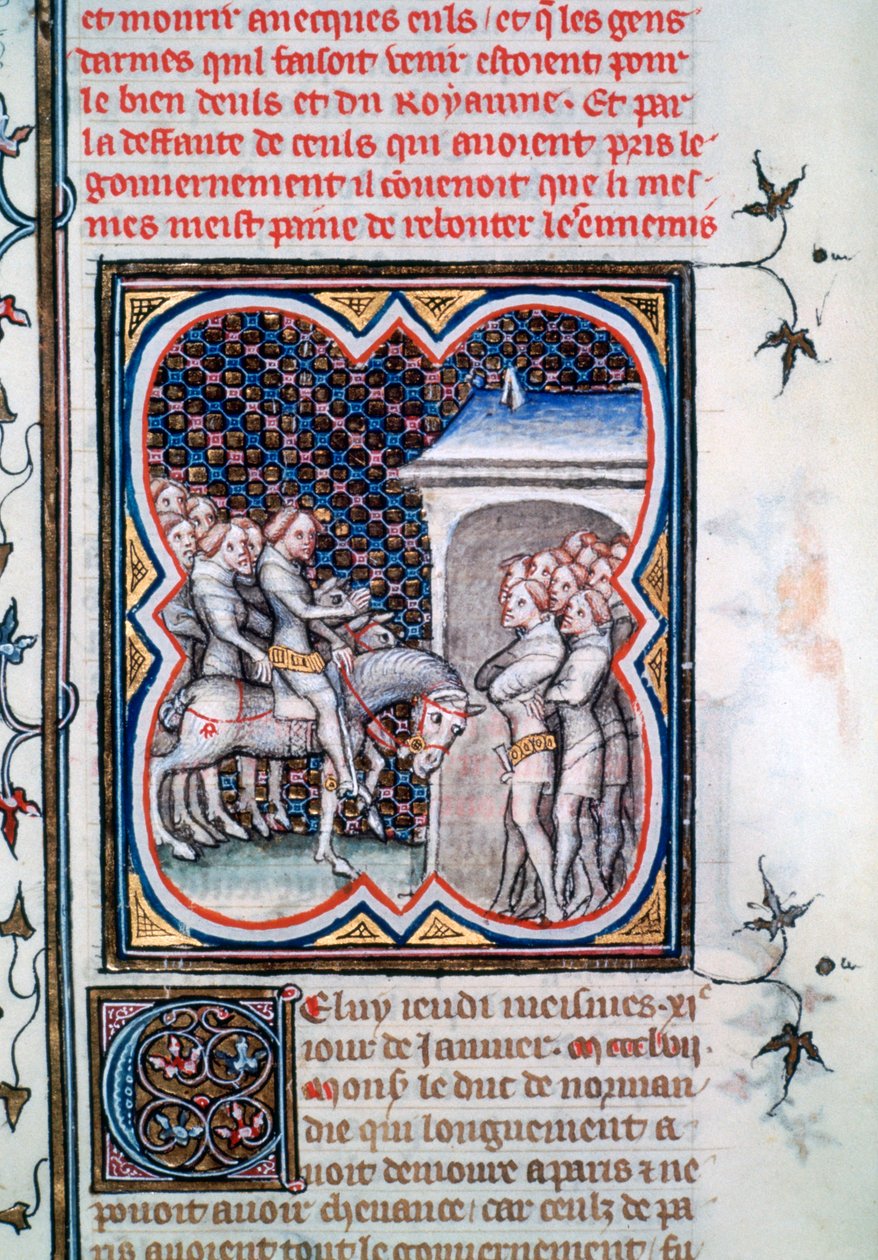 et mourir avecques euls / et q̃ les gens
darmes quil faisoit venir estoient pour
le bien deuls et du Royaume. Et par
la deffaute de ceuls qui avoient pris le
gouvernement il cõvenoit que li mes
mes meist paine de rebouter les ennemis
Celuy jeudi meismes . xi͏ͤ
jour de Januier . mccclvii .
Mons̃ le duc de norman
die qui longuement a
uoit demoure a paris ⁊ ne
pouoit avoir chevance / car ceulz de pa
ris avoient tout le gouvernement / fu